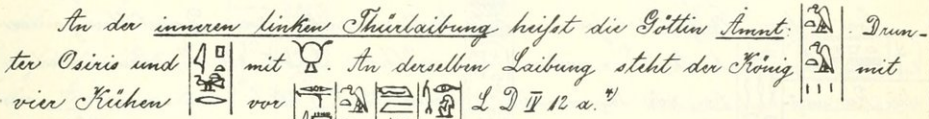 An der inneren linken Thürlaibung heißt die Göttin Åmnt: . Drun-
ter Osiris und mit . An derselben Laibung steht der König mit
vier Kühen vor L D IV 12 a.*)